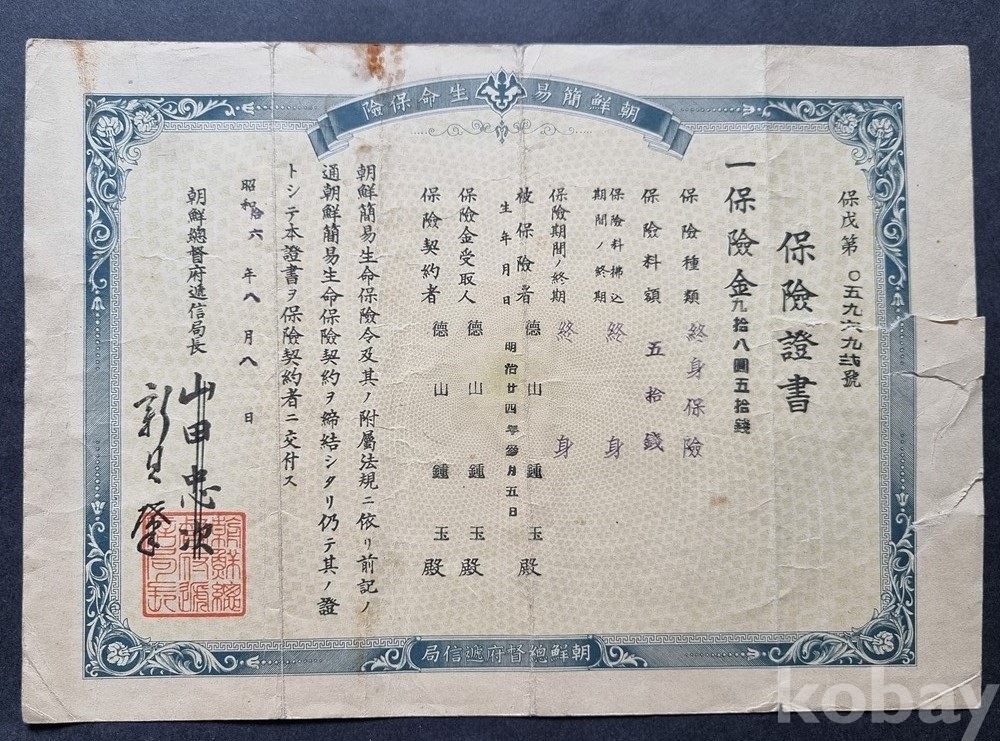 朝鮮簡易生命保險
保戊第〇五九六九弐號
保險證書
一保險金九拾八圓五拾錢
保險種類 終身保險
保險料額 五拾錢
保險料拂込期間ノ終期 終身
保險期間ノ終期 終身
被保險者 德山鍾玉殿
生年月日 明治廿四年參月五日
保險金受取人 德山鍾玉殿
保險契約者 德山鍾玉殿
朝鮮簡易生命保險令及其ノ附屬法規ニ依リ前記ノ
通朝鮮簡易生命保險契約ヲ締結シタリ仍テ其ノ證
トシテ本證書ヲ保險契約者ニ交付ス
昭和拾六年八月八日
朝鮮總督府遞信局長 山田忠次
新貝肇
朝鮮總督府遞信局
kobay